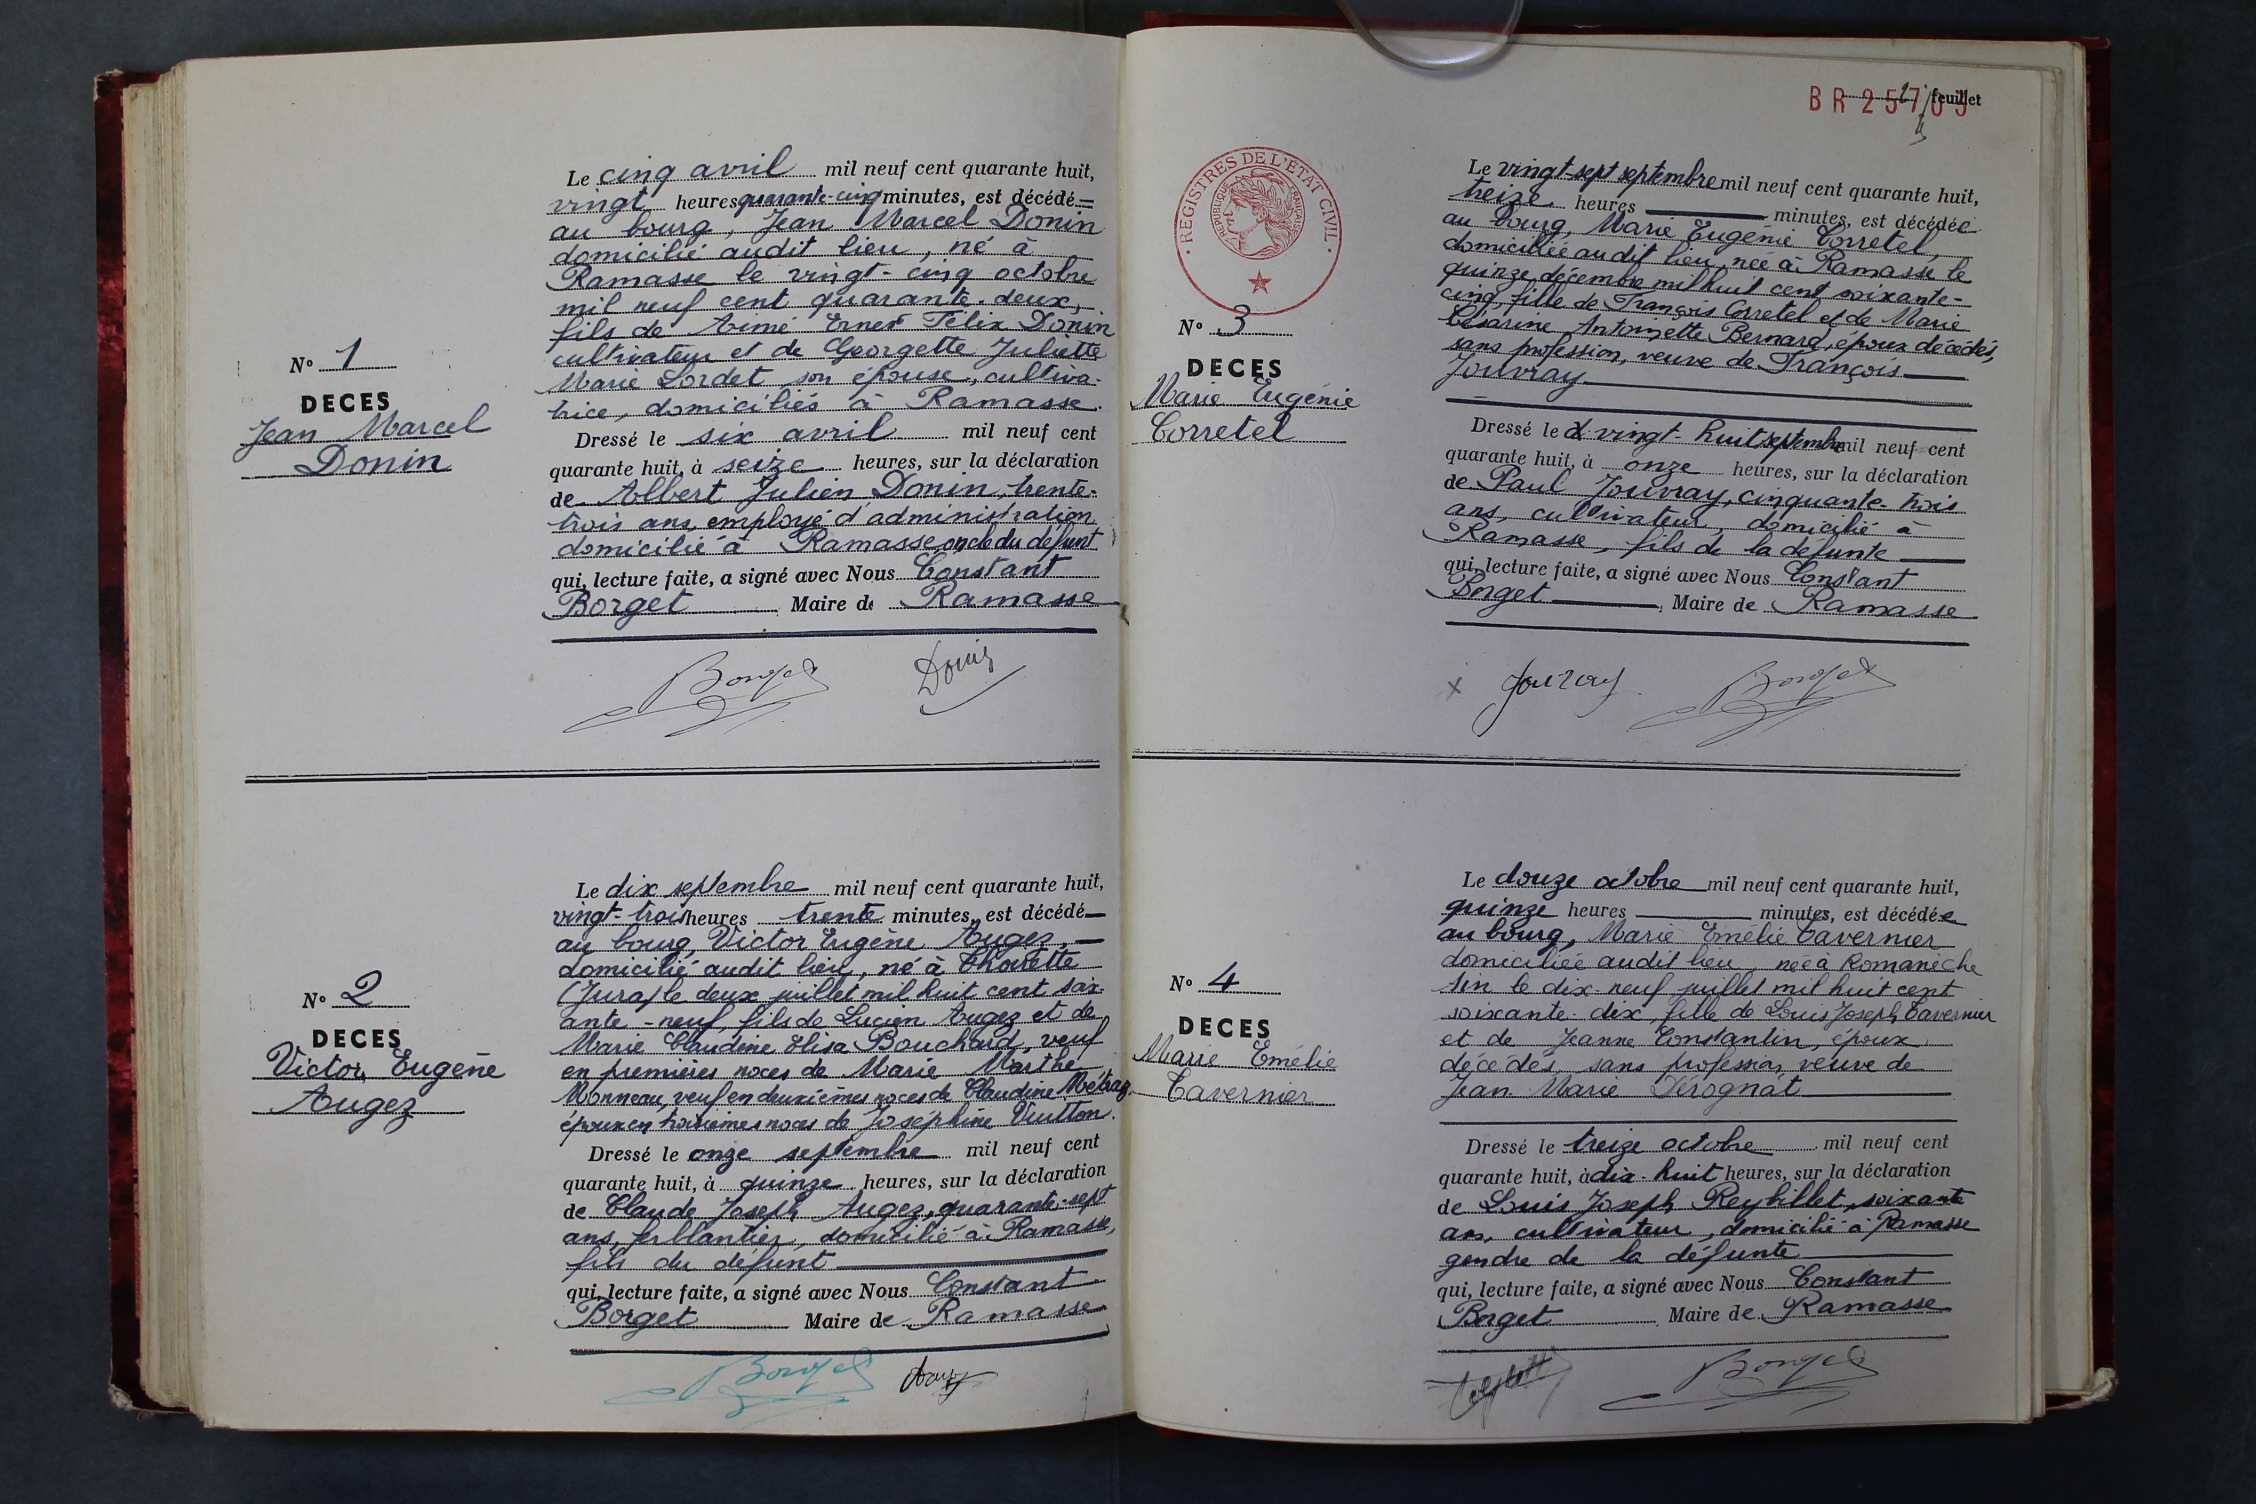 Le cinq avril mil neuf cent quarante huit,
vingt heures quarante-cinq minutes, est décédé
au bourg, Jean Marcel Donin
domicilié audit lieu, né à
Ramasse le vingt-cinq octobre
mil neuf cent quarante-deux,
fils de Aimé Ernest Félix Donin
cultivateur et de Georgette Juliette
Marie Lordet son épouse, cultiva-
trice, domiciliés à Ramasse.
N° 1
DECES
Jean Marcel
Donin
Dressé le six avril mil neuf cent
quarante huit, à seize heures, sur la déclaration
de Albert Julien Donin, trente-
trois ans, employé d'administration
domicilié à Ramasse, oncle du défunt
qui, lecture faite, a signé avec Nous Constant
Borget Maire de Ramasse
Borget Donin
Le dix septembre mil neuf cent quarante huit,
vingt-trois heures trente minutes, est décédé
au bourg, Victor Eugène Augez,
domicilié audit lieu, né à
(Jura) le deux juillet mil huit cent soix-
ante-neuf, fils de Lucien Augez et de
Marie Claudine Elisa Bouchard, veuf
en premières noces de Marie Marthe
Monneau, veuf en deuxièmes noces de Claudine Métraz
époux en troisièmes noces de Joséphine Vuitton.
N° 2
DECES
Victor Eugène
Augez
Dressé le onze septembre mil neuf cent
quarante huit, à quinze heures, sur la déclaration
de Claude Joseph Augez, quarante-sept
ans, ferblantier, domicilié à Ramasse,
fils du défunt
qui, lecture faite, a signé avec Nous Constant
Borget Maire de Ramasse
Borget
BR 25703
feuillet
REGISTRES DE L'ETAT CIVIL
REPUBLIQUE FRANÇAISE
Le vingt-sept septembre mil neuf cent quarante huit,
treize heures minutes, est décédée
au bourg, Marie Eugénie Corretel,
domiciliée audit lieu, née à Ramasse le
quinze décembre mil huit cent soixante-
cinq, fille de François Corretel et de Marie
Césarine Antoinette Bernard, époux décédés,
sans profession, veuve de François
Jouvray
N° 3
DECES
Marie Eugénie
Corretel
Dressé le vingt-huit septembre mil neuf cent
quarante huit, à onze heures, sur la déclaration
de Paul Jouvray, cinquante-trois
ans, cultivateur, domicilié à
Ramasse, fils de la défunte
qui, lecture faite, a signé avec Nous Constant
Borget, Maire de Ramasse
x Jouvray Borget
Le douze octobre mil neuf cent quarante huit,
quinze heures minutes, est décédée
au bourg, Marie Emélie Tavernier
domiciliée audit lieu, née à Romanèche
sin le dix-neuf juillet mil huit cent
soixante-dix, fille de Louis Joseph Tavernier
et de Jeanne Constantin, époux
décédés, sans profession, veuve de
Jean Marie Dérognat
N° 4
DECES
Marie Emélie
Tavernier
Dressé le treize octobre mil neuf cent
quarante huit, à dix-huit heures, sur la déclaration
de Louis Joseph Reybillet, soixante
ans, cultivateur, domicilié à Ramasse
gendre de la défunte
qui, lecture faite, a signé avec Nous Constant
Borget Maire de Ramasse
Borget